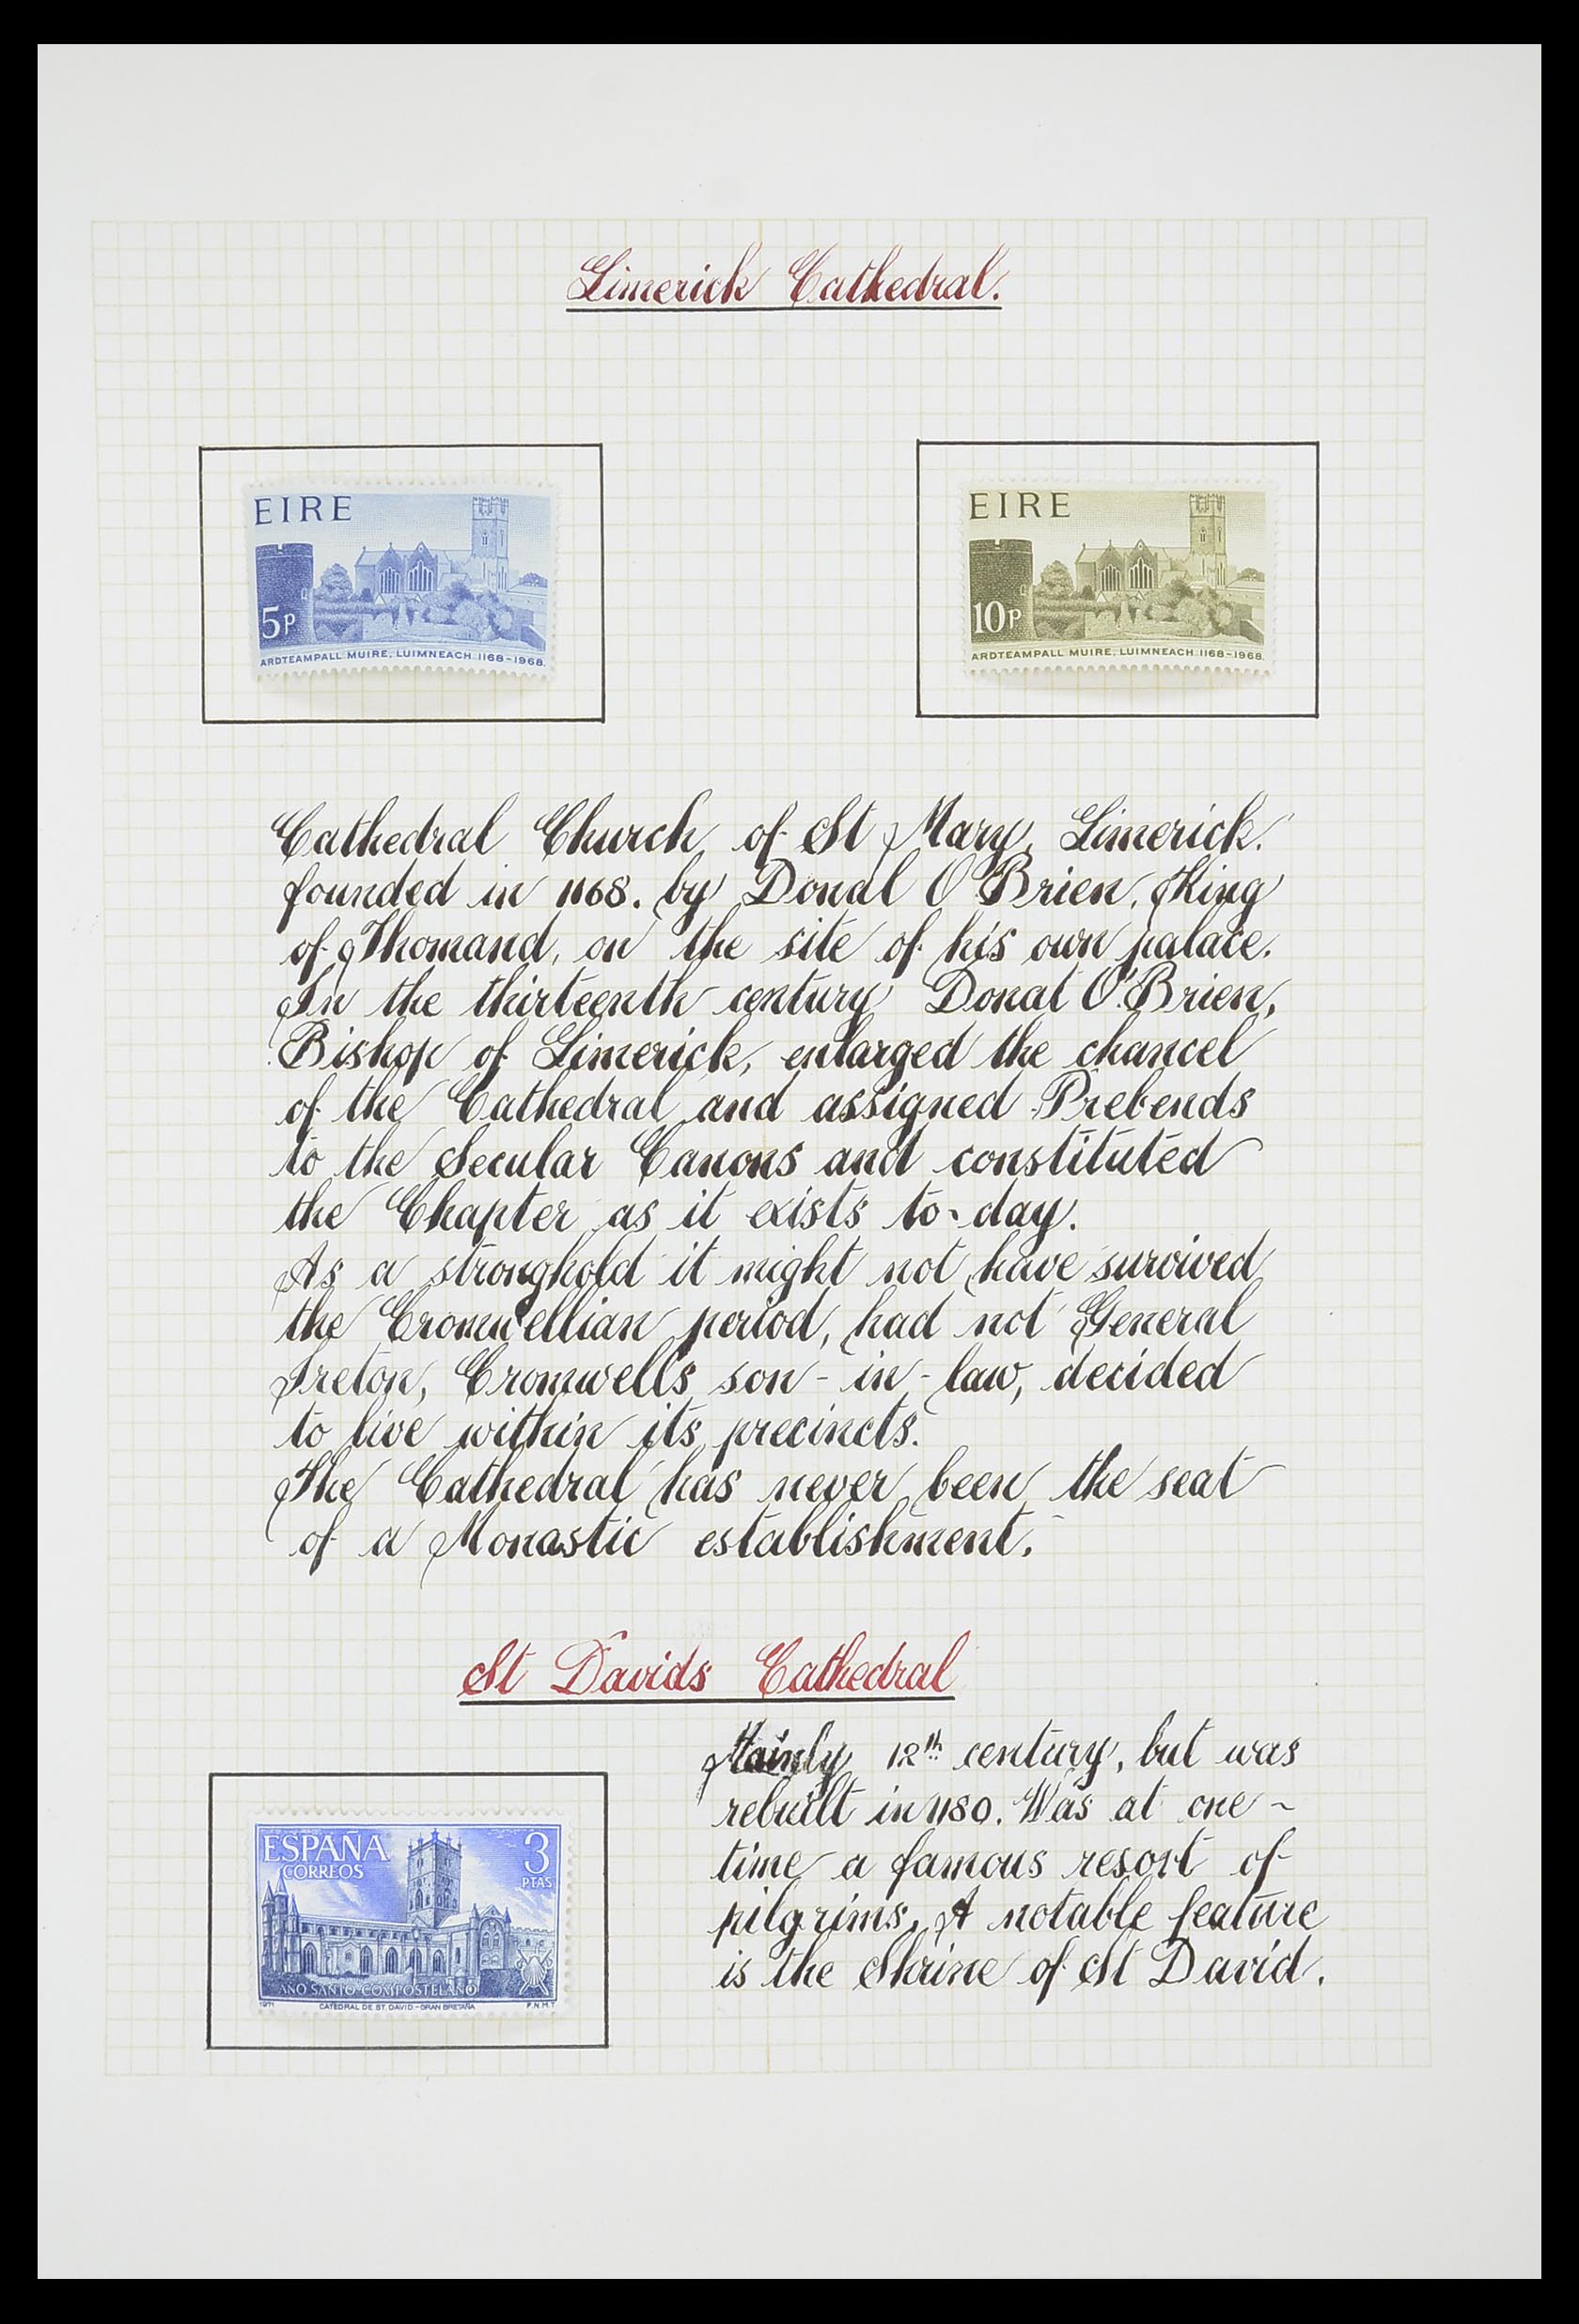 Limerick Cathedral.
EIRE
5p
ARDTEAMPALL MUIRE, LUIMNEACH 1168-1968.
EIRE
10p
ARDTEAMPALL MUIRE, LUIMNEACH 1168-1968.
Cathedral Church of St Mary, Limerick.
founded in 1168. by Donal O'Brien, King
of Thomand, on the site of his own palace.
In the thirteenth century Donat O'Brien,
Bishop of Limerick, enlarged the chancel
of the Cathedral and assigned Prebends
to the Secular Canons and constituted
the Chapter as it exists to-day.
As a stronghold it might not have survived
the Cromwellian period, had not General
Ireton, Cromwell's son-in-law, decided
to live within its precincts.
The Cathedral has never been the seat
of a Monastic establishment.
St Davids Cathedral
ESPAÑA
CORREOS
3
PTAS
AÑO SANTO COMPOSTELANO
1971 CATEDRAL DE ST. DAVID - GRAN BRETAÑA F.N.M.T
Mainly 12th century, but was
rebuilt in 1180. Was at one-
time a famous resort of
pilgrims. A notable feature
is the Shrine of St David.